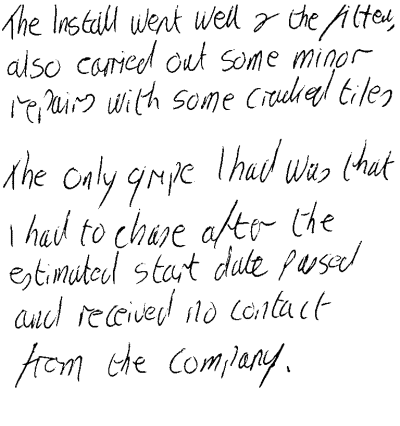 The Install went well & the fitters
also carried out some minor
repairs with some cracked tiles
The only gripe I had was that
I had to chase after the
estimated start date passed
and received no contact
from the company.